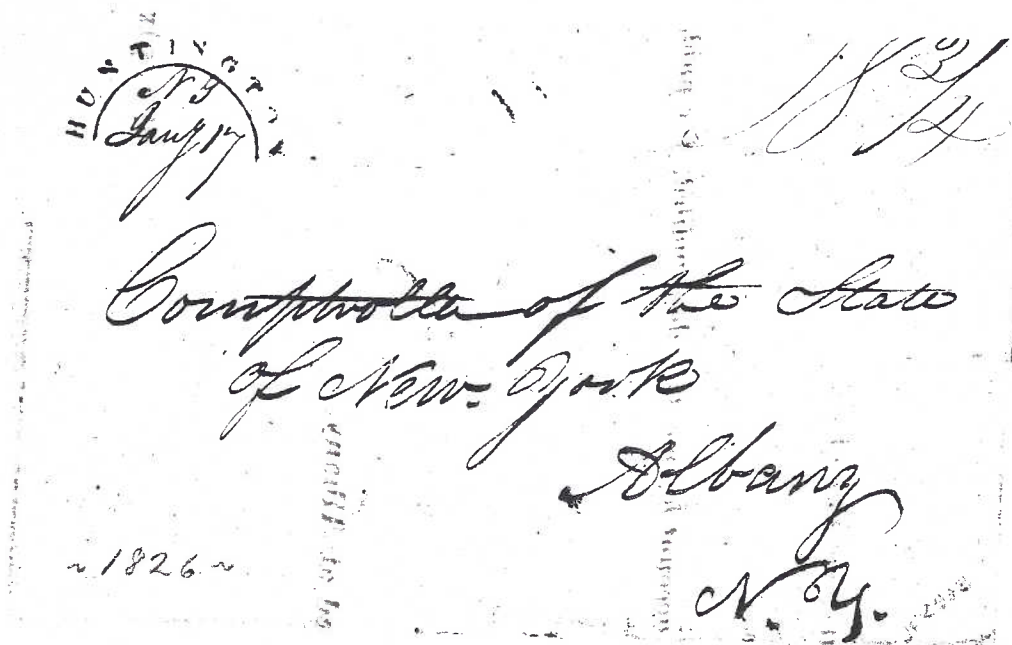 HUNTINGTON
NY
Jany 17
18 3/4
Comptroller of the State
of New-York
Albany
N.Y.
~1826~